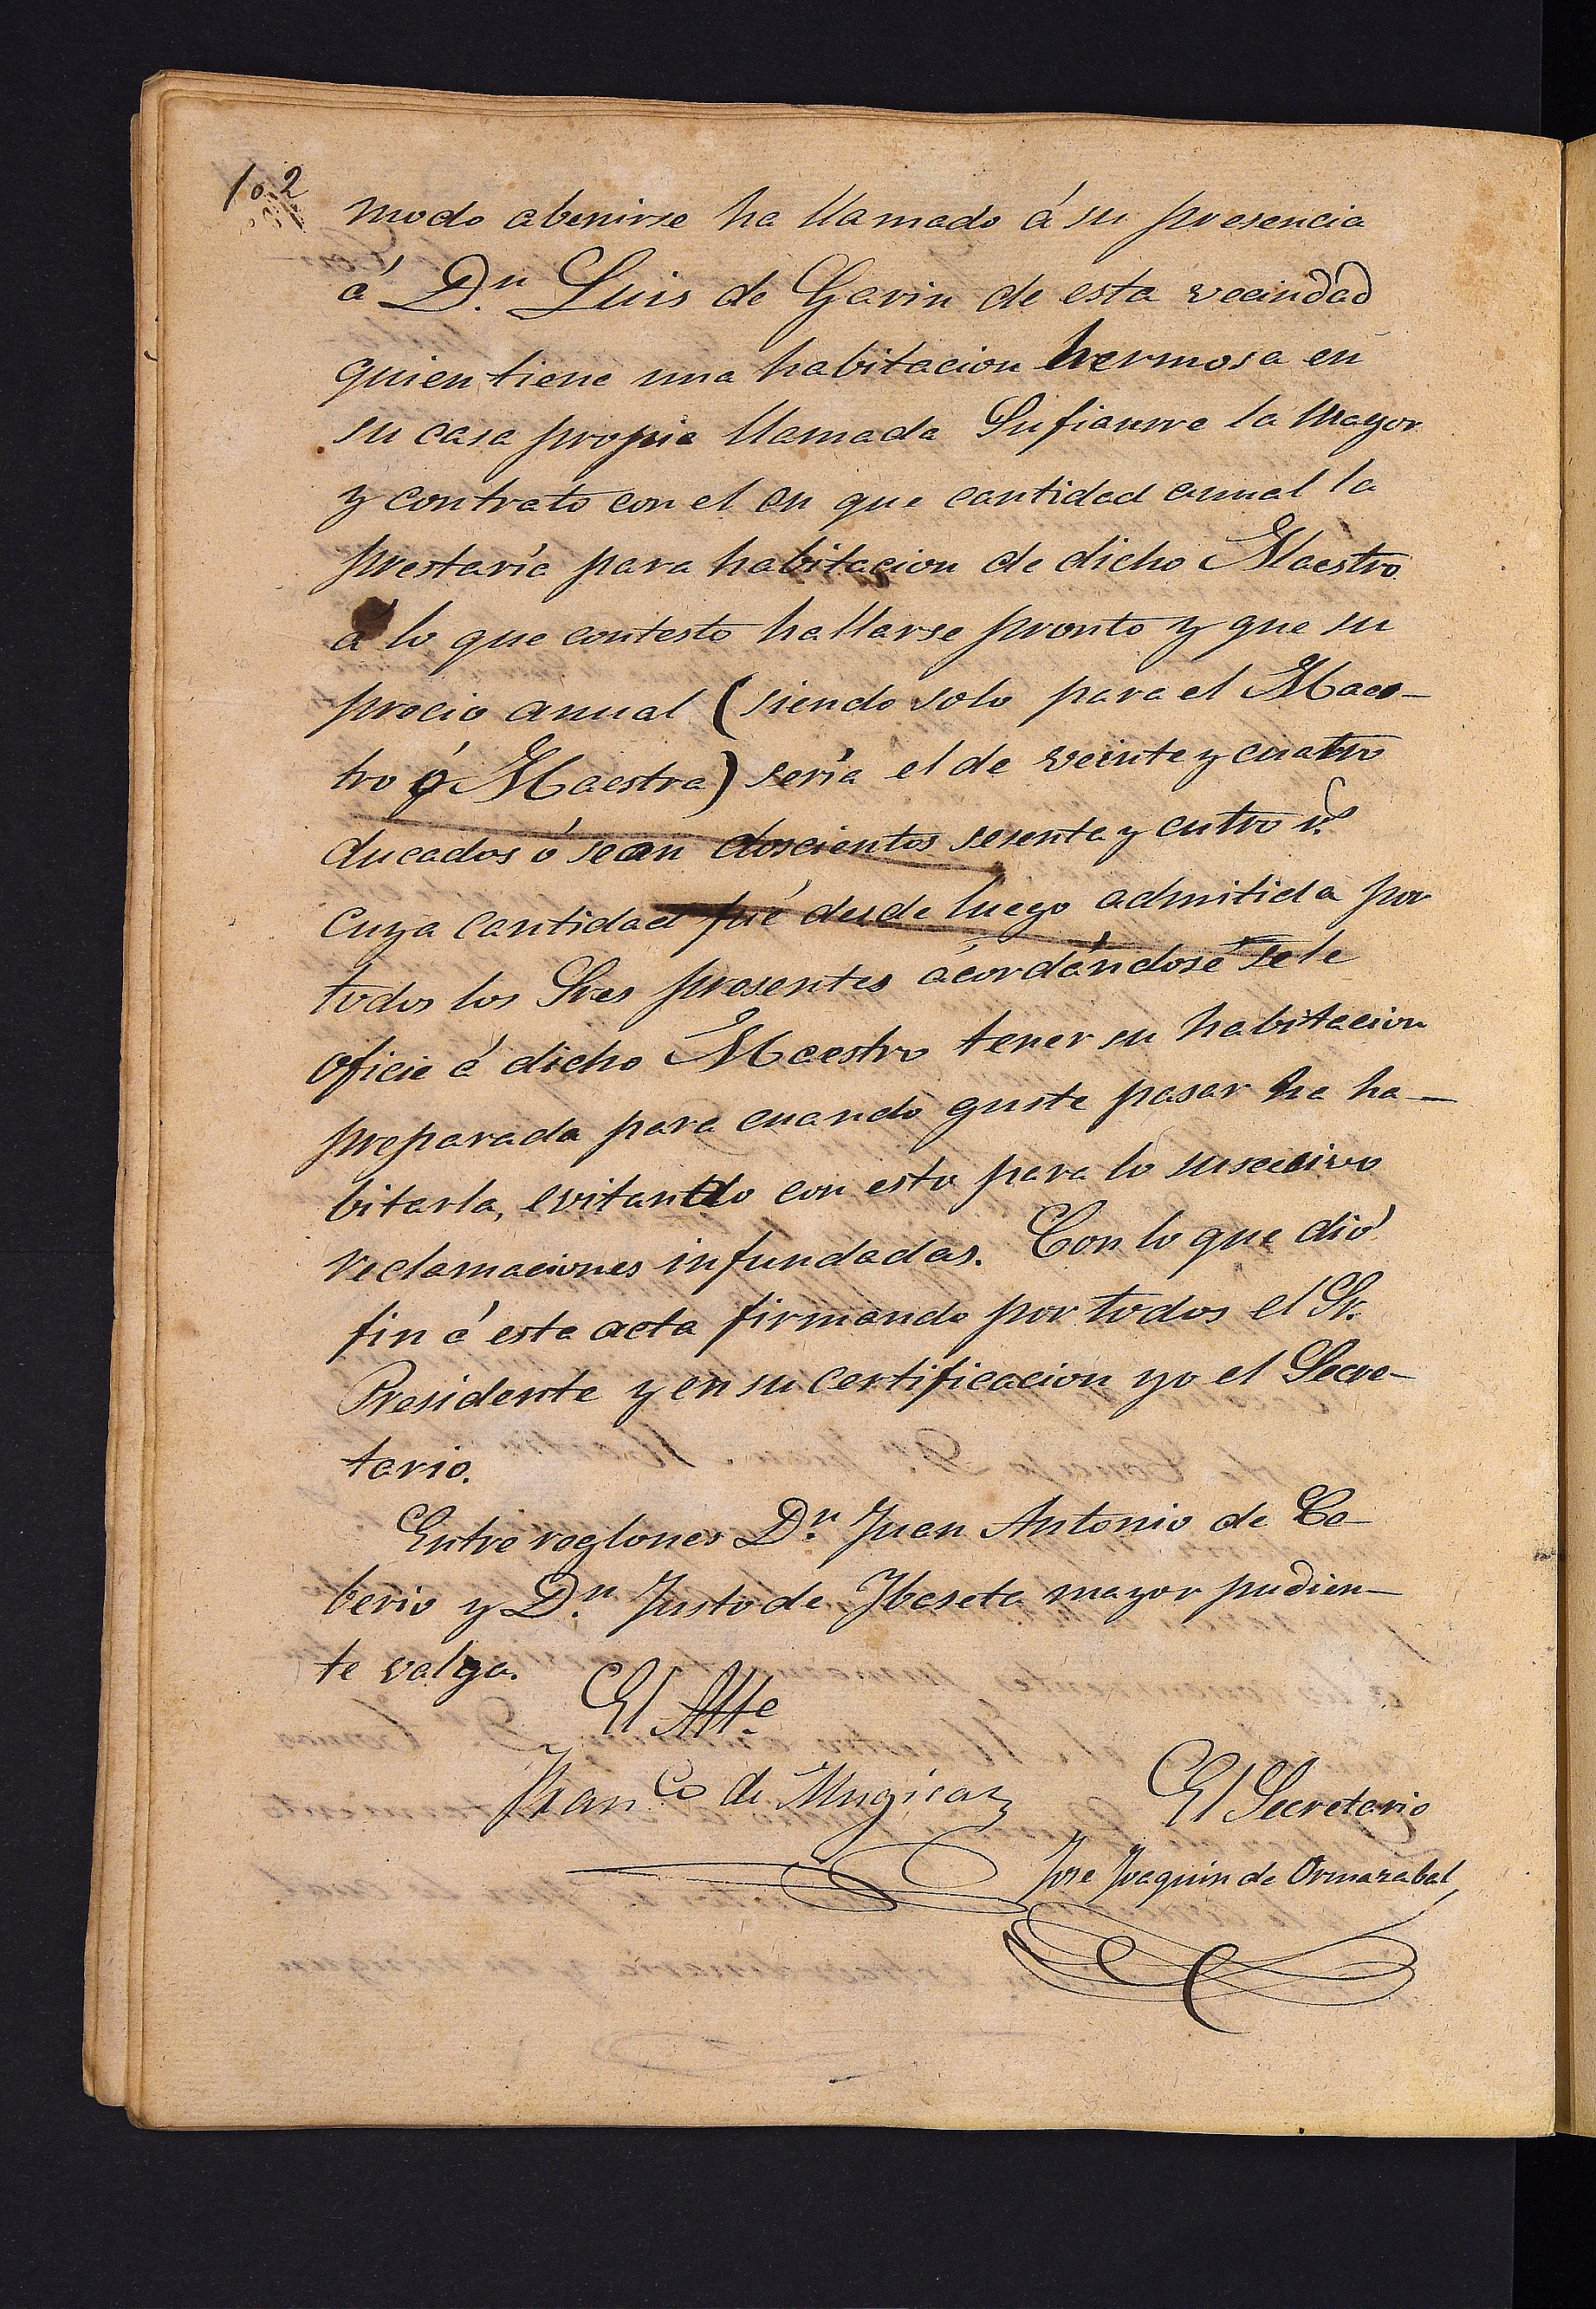 102
modo abenirse ha llamado á su presencia
á D.n Luis de Garin de esta vecindad
quien tiene una habitacion hermosa en
su casa propia llamada Sufiaurre la Mayor
y contrato con el en que cantidad anual la
prestaría para habitacion de dicho Maestro
á lo que contesto hallarse pronto y que su
precio anual (siendo solo para el Maes-
tro ó Maestra) sería el de veinte y cuatro
ducados ó sean doscientos sesenta y cutro r.s
cuya cantidad fué desde luego admitida por
todos los Sres presentes ácordándose se le
oficie á dicho Maestro tener su habitacion
preparada para cuando guste pasar ha ha-
bitarla, evitando con esto para lo succesivo
reclamaciones infundadas. Con lo que dió
fin á esta acta firmando por todos el Sr.
Presidente y en su certificacion yo el Secre-
tario.
Entre reglones D.n Juan Antonio de Ce-
berio y D.n Justo de Ybaseta mayor pudien-
te valga.
El Alt.e
Fran.co de Mugica
El Secretario
Jose Joaquin de Ormazabal